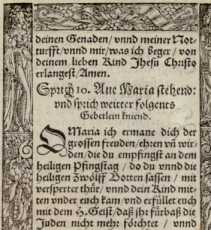 deinen Genaden/ vnnd meiner Not-
turfft/ vnnd mir/ was ich beger/ von
deinem lieben Kind Jhesu Christo
erlangest/ Amen.
Spruch 10. Aue Maria stehend:
vnd sprich weitter folgents
Gebetlein kniend.
O Maria ich ermane dich der
grossen freuden/ ehren vñ wir-
den/ die du empfingst an dem
heiligen Pfingstag/ do du vnnd die
heiligen zwölff Botten sassen/ mit
versperter thür/ vnnd dein Kind mit-
ten vnder euch kam/ vnd erfüllet euch
mit dem H. Geist/ daß jhr fürbaß die
Juden nicht mehr förchtet/ vnnd